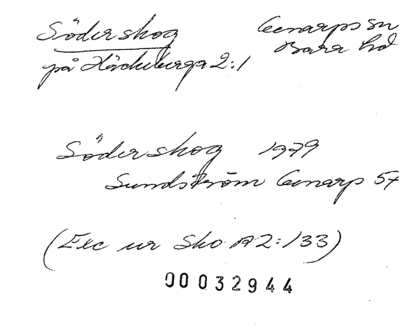 Söderskog Genarps sn
Bara hd
på Häckeberga 2:1
Söderskog 1979
Sundström Genarp 57
(Exc ur Sko A2:133)
00032944